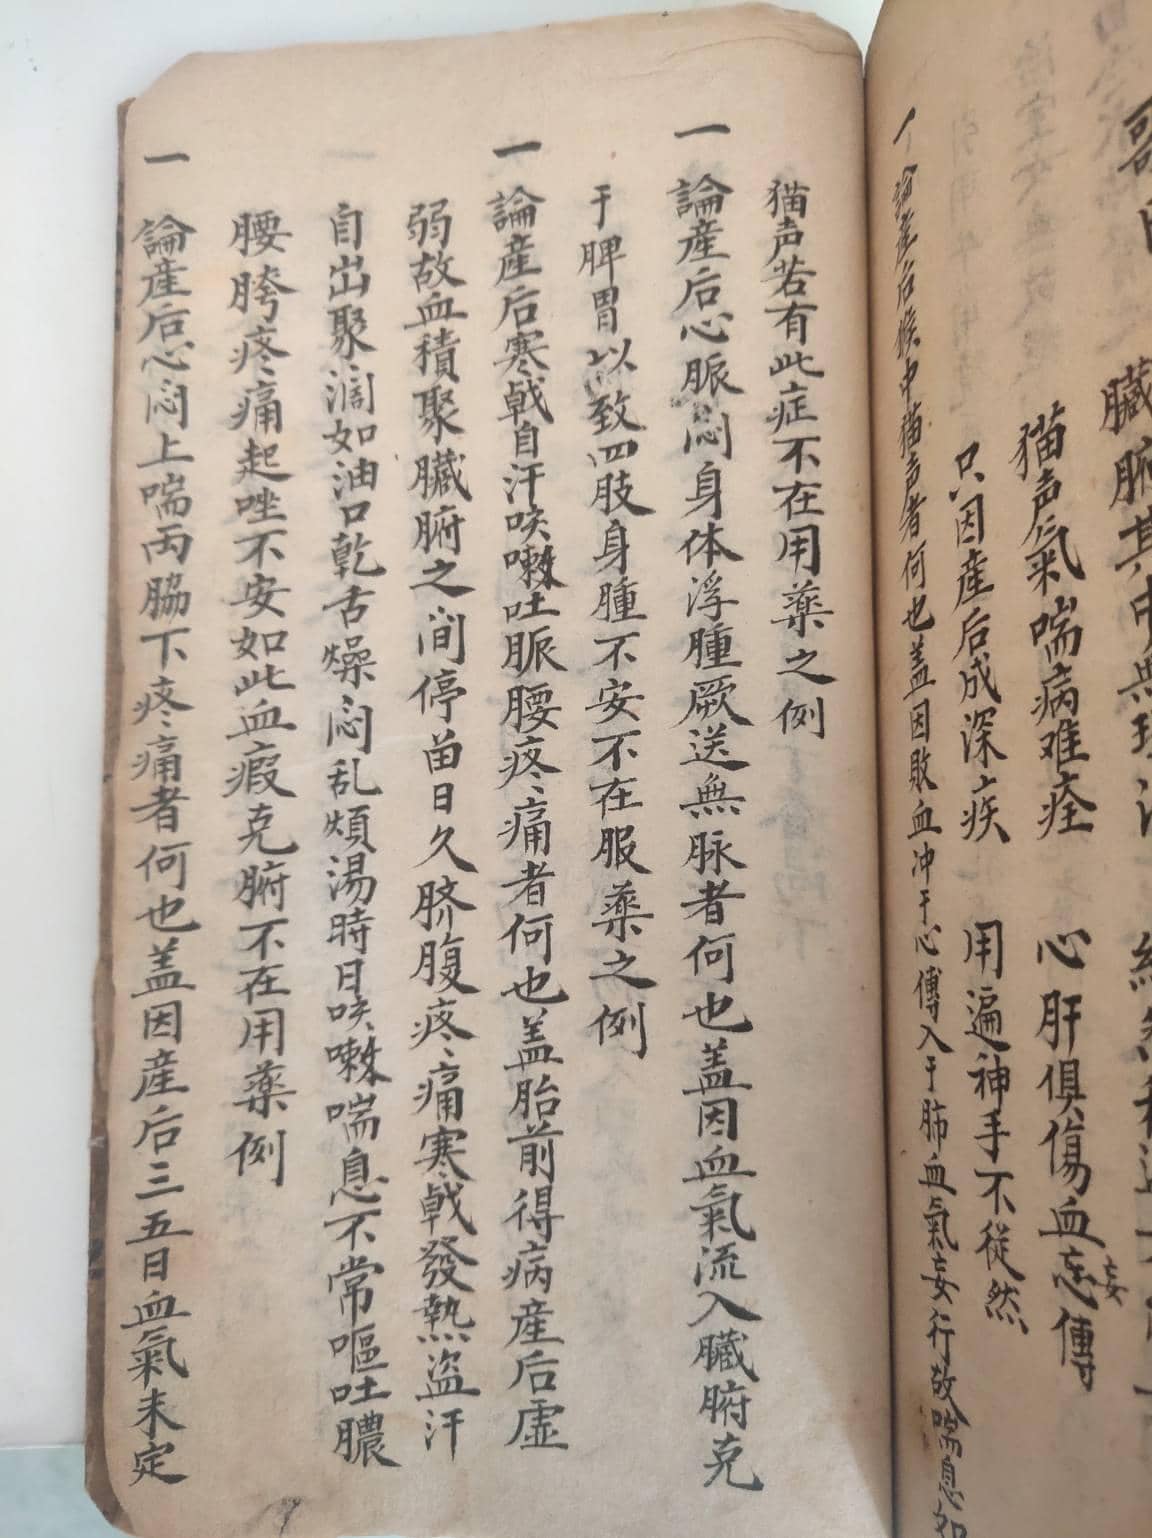 臟腑其中無
猫声氣喘病难痊 心肝俱傷血忘傳
妄
只因産后成深疾 用遍神手不從然
一論産后候中猫声者何也盖因敗血冲于心傳入于肺血氣妄行故喘息如
猫声若有此症不在用薬之例
一論産后心脈悶身体浮腫厥送無脉者何也盖因血氣流入臟腑克
于脾胃以致四肢身腫不安不在服薬之例
一論産后寒戟自汗咳嗽吐脈腰疼痛者何也盖胎前得病産后虚
弱故血積聚臟腑之间停畄日久脐腹疼痛寒戟發熱盗汗
自出聚濶如油口乾舌燥悶乱煩湯時日咳嗽喘息不常嘔吐膿
腰胯疼痛起唑不安如此血瘕克腑不在用薬例
一論産后心悶上喘両脇下疼痛者何也盖因産后三五日血氣未定